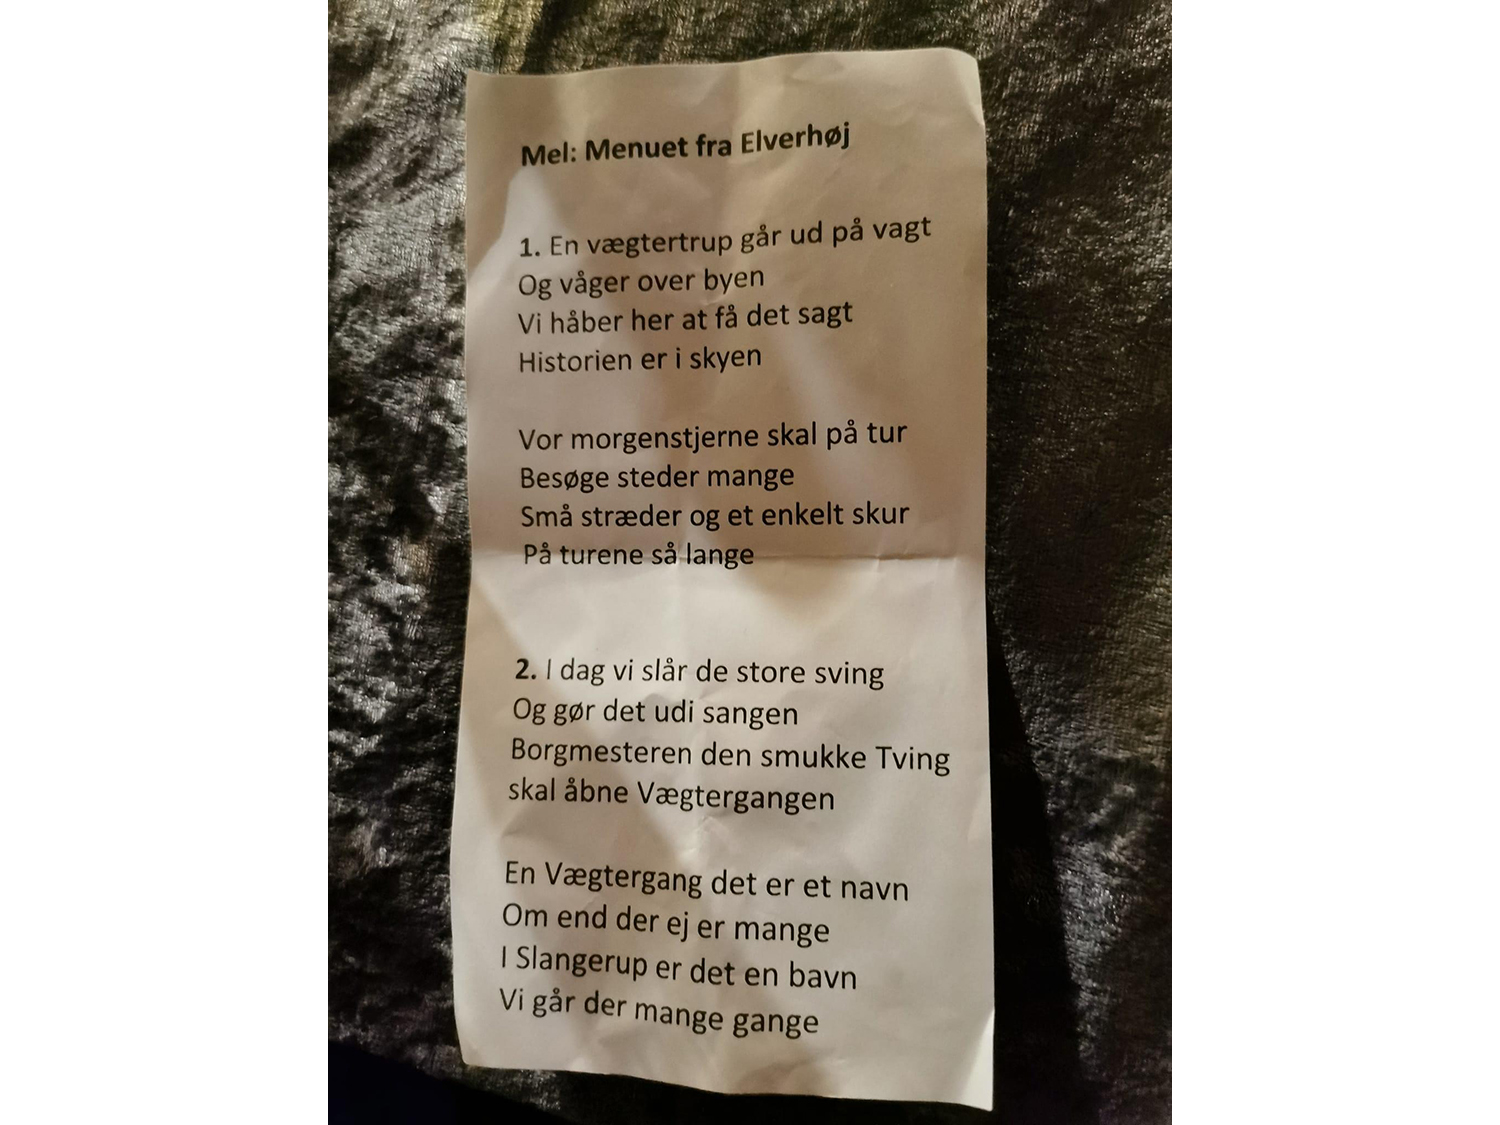 Mel: Menuet fra Elverhøj
1. En vægtertrup går ud på vagt
Og våger over byen
Vi håber her at få det sagt
Historien er i skyen
Vor morgenstjerne skal på tur
Besøge steder mange
Små stræder og et enkelt skur
På turene så lange
2. I dag vi slår de store sving
Og gør det udi sangen
Borgmesteren den smukke Tving
skal åbne Vægtergangen
En Vægtergang det er et navn
Om end der ej er mange
I Slangerup er det en bavn
Vi går der mange gange